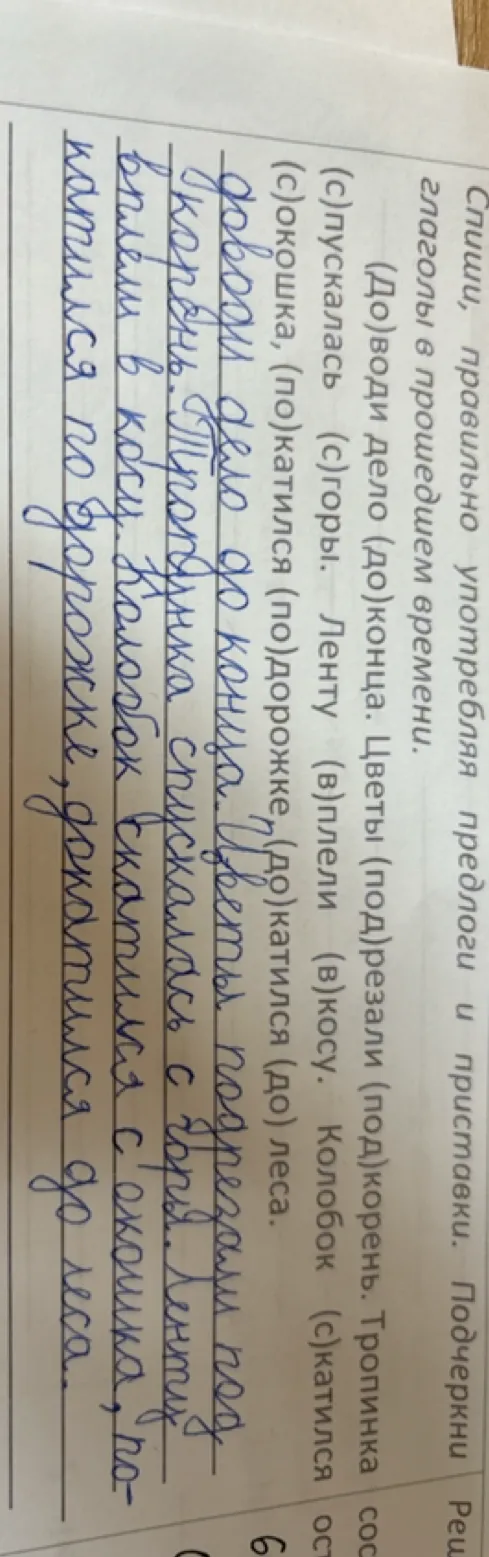 Спиши, правильно употребляя предлоги и приставки. Подчеркни
глаголы в прошедшем времени.
(До)води дело (до)конца. Цветы (под)резали (под)корень. Тропинка
(с)пускалась (с)горы. Ленту (в)плели (в)косу. Колобок (с)катился
(с)окошка, (по)катился (по)дорожке, (до)катился (до) леса.
доводи дело до конца. Цветы подрезали под
корень. Тропинка спускалась с горы. Ленту
вплели в косу. Колобок скатился с окошка, по-
катился по дорожке, докатился до леса.
Реш
сос
ост
6